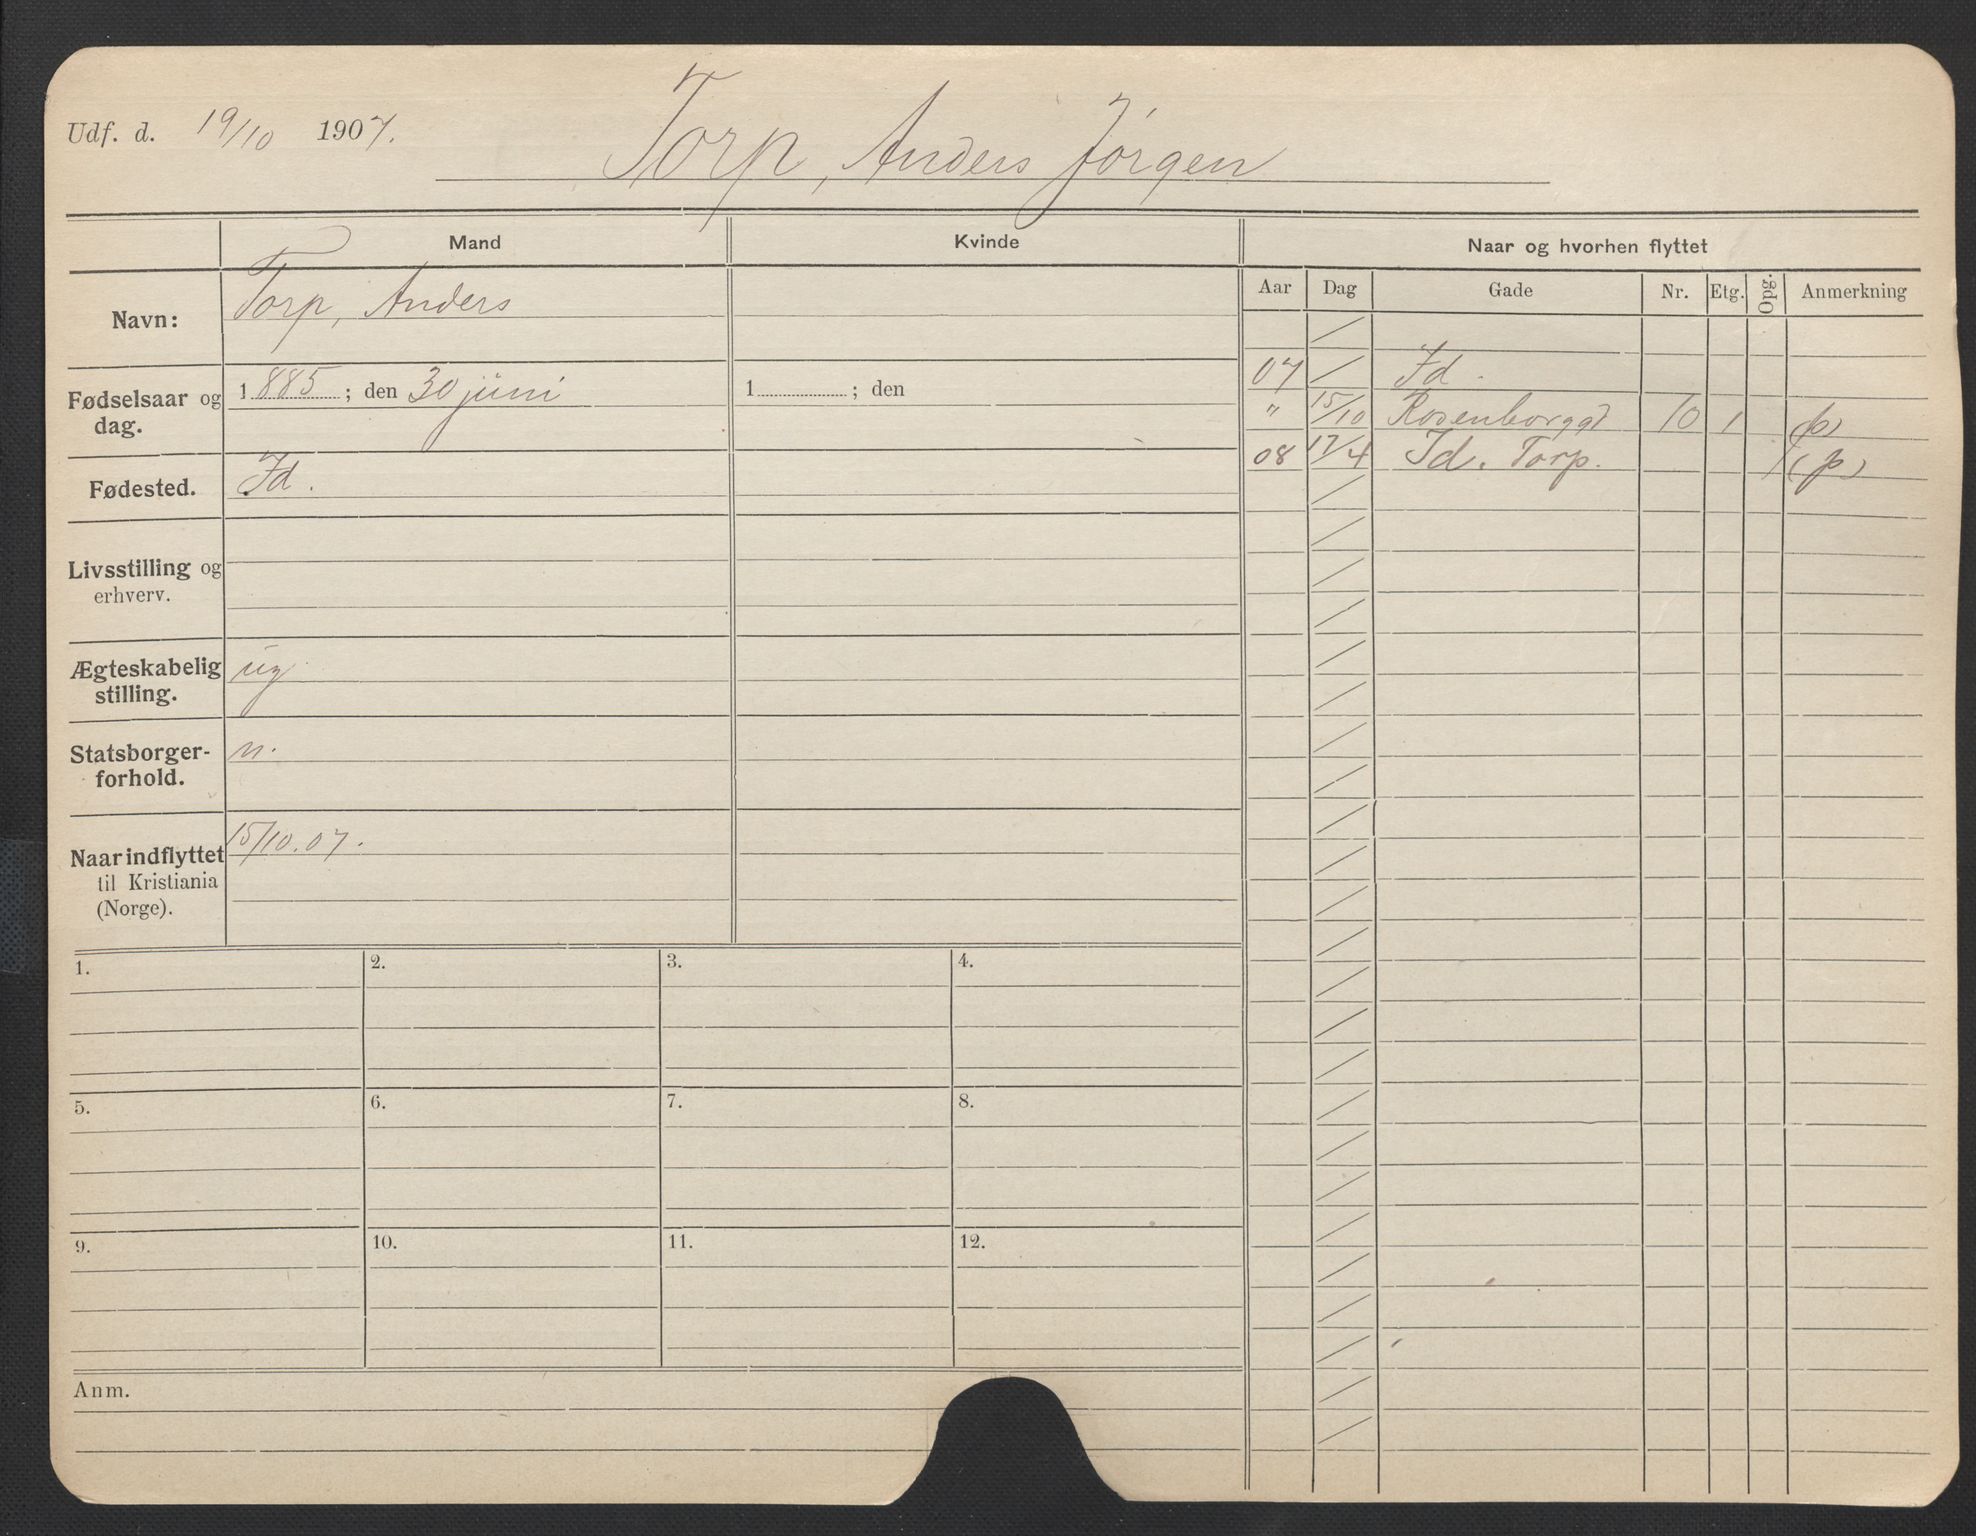 Udf. d. 19/10 1907.
Torp, Anders Jörgen
Mand
Kvinde
Naar og hvorhen flyttet
Navn:
Torp, Anders
Aar Dag Gade Nr. Etg. Opg. Anmerkning
Fødselsaar og dag.
1885; den 30 juni
1 ; den
07 / Id.
" 15/10 Rosenborggt 10 1 (p)
08 17/4 Id. Torp. (p)
Fødested.
Id.
Livsstilling og
erhverv.
Ægteskabelig
stilling.
ug
Statsborger-
forhold.
n.
Naar indflyttet
til Kristiania
(Norge).
15/10.07.
1. 2. 3. 4.
5. 6. 7. 8.
9. 10. 11. 12.
Anm.